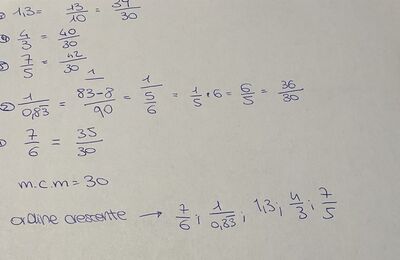 1,3 = 13/10 = 39/30
4/3 = 40/30
7/5 = 42/30
1/0,83 = 1/(83-8/90) = 1/(5/6) = 1/5 • 6 = 6/5 = 36/30
7/6 = 35/30
m.c.m = 30
ordine crescente → 7/6 ; 1/0,83 ; 1,3 ; 4/3 ; 7/5